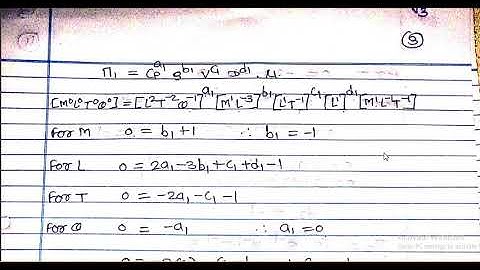 ⑨
π₁ = Cp^a₁ ρ^b₁ V^c₁ D^d₁ . μ
[M⁰L⁰T⁰θ⁰] = [L²T⁻²θ⁻¹]^a₁ [M¹L⁻³]^b₁ [L¹T⁻¹]^c₁ [L¹]^d₁ [M¹L⁻¹T⁻¹]
For M 0 = b₁ + 1 ∴ b₁ = -1
For L 0 = 2a₁ - 3b₁ + c₁ + d₁ - 1
For T 0 = -2a₁ - c₁ - 1
For θ 0 = -a₁ ∴ a₁ = 0